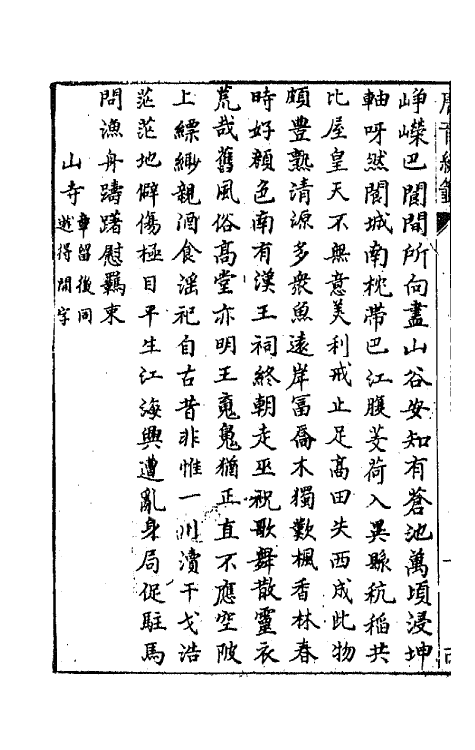 崢嶸巴閬間所向盡山谷安知有蒼池萬頃浸坤
軸呀然閬城南枕帶巴江腹芰荷入異縣秔稻共
比屋皇天不無意美利戒止足高田失西成此物
頗豐熟清源多衆魚遠岸富喬木獨歎楓香林春
時好顏色南有漢王祠終朝走巫祝歌舞散靈衣
荒哉舊風俗高堂亦明王魂魄猶正直不應空陂
上縹緲親酒食滛祀自古昔非惟一川瀆干戈浩
茫茫地僻傷極目平生江海興遭亂身局促駐馬
問漁舟躊躇慰羈束
山寺
章留後同
遊得開字